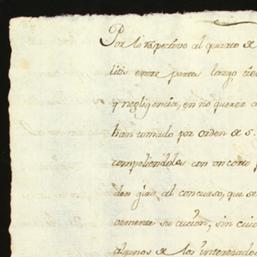 Por lo respectivo al quinto de
litis entre partes largo tie
y negligencia, en no querer a
han tomado por orden de S.
compeliendole con un corto p
dan girar al concurso, que se
mente su accion, sin cui
algunos de los interesados